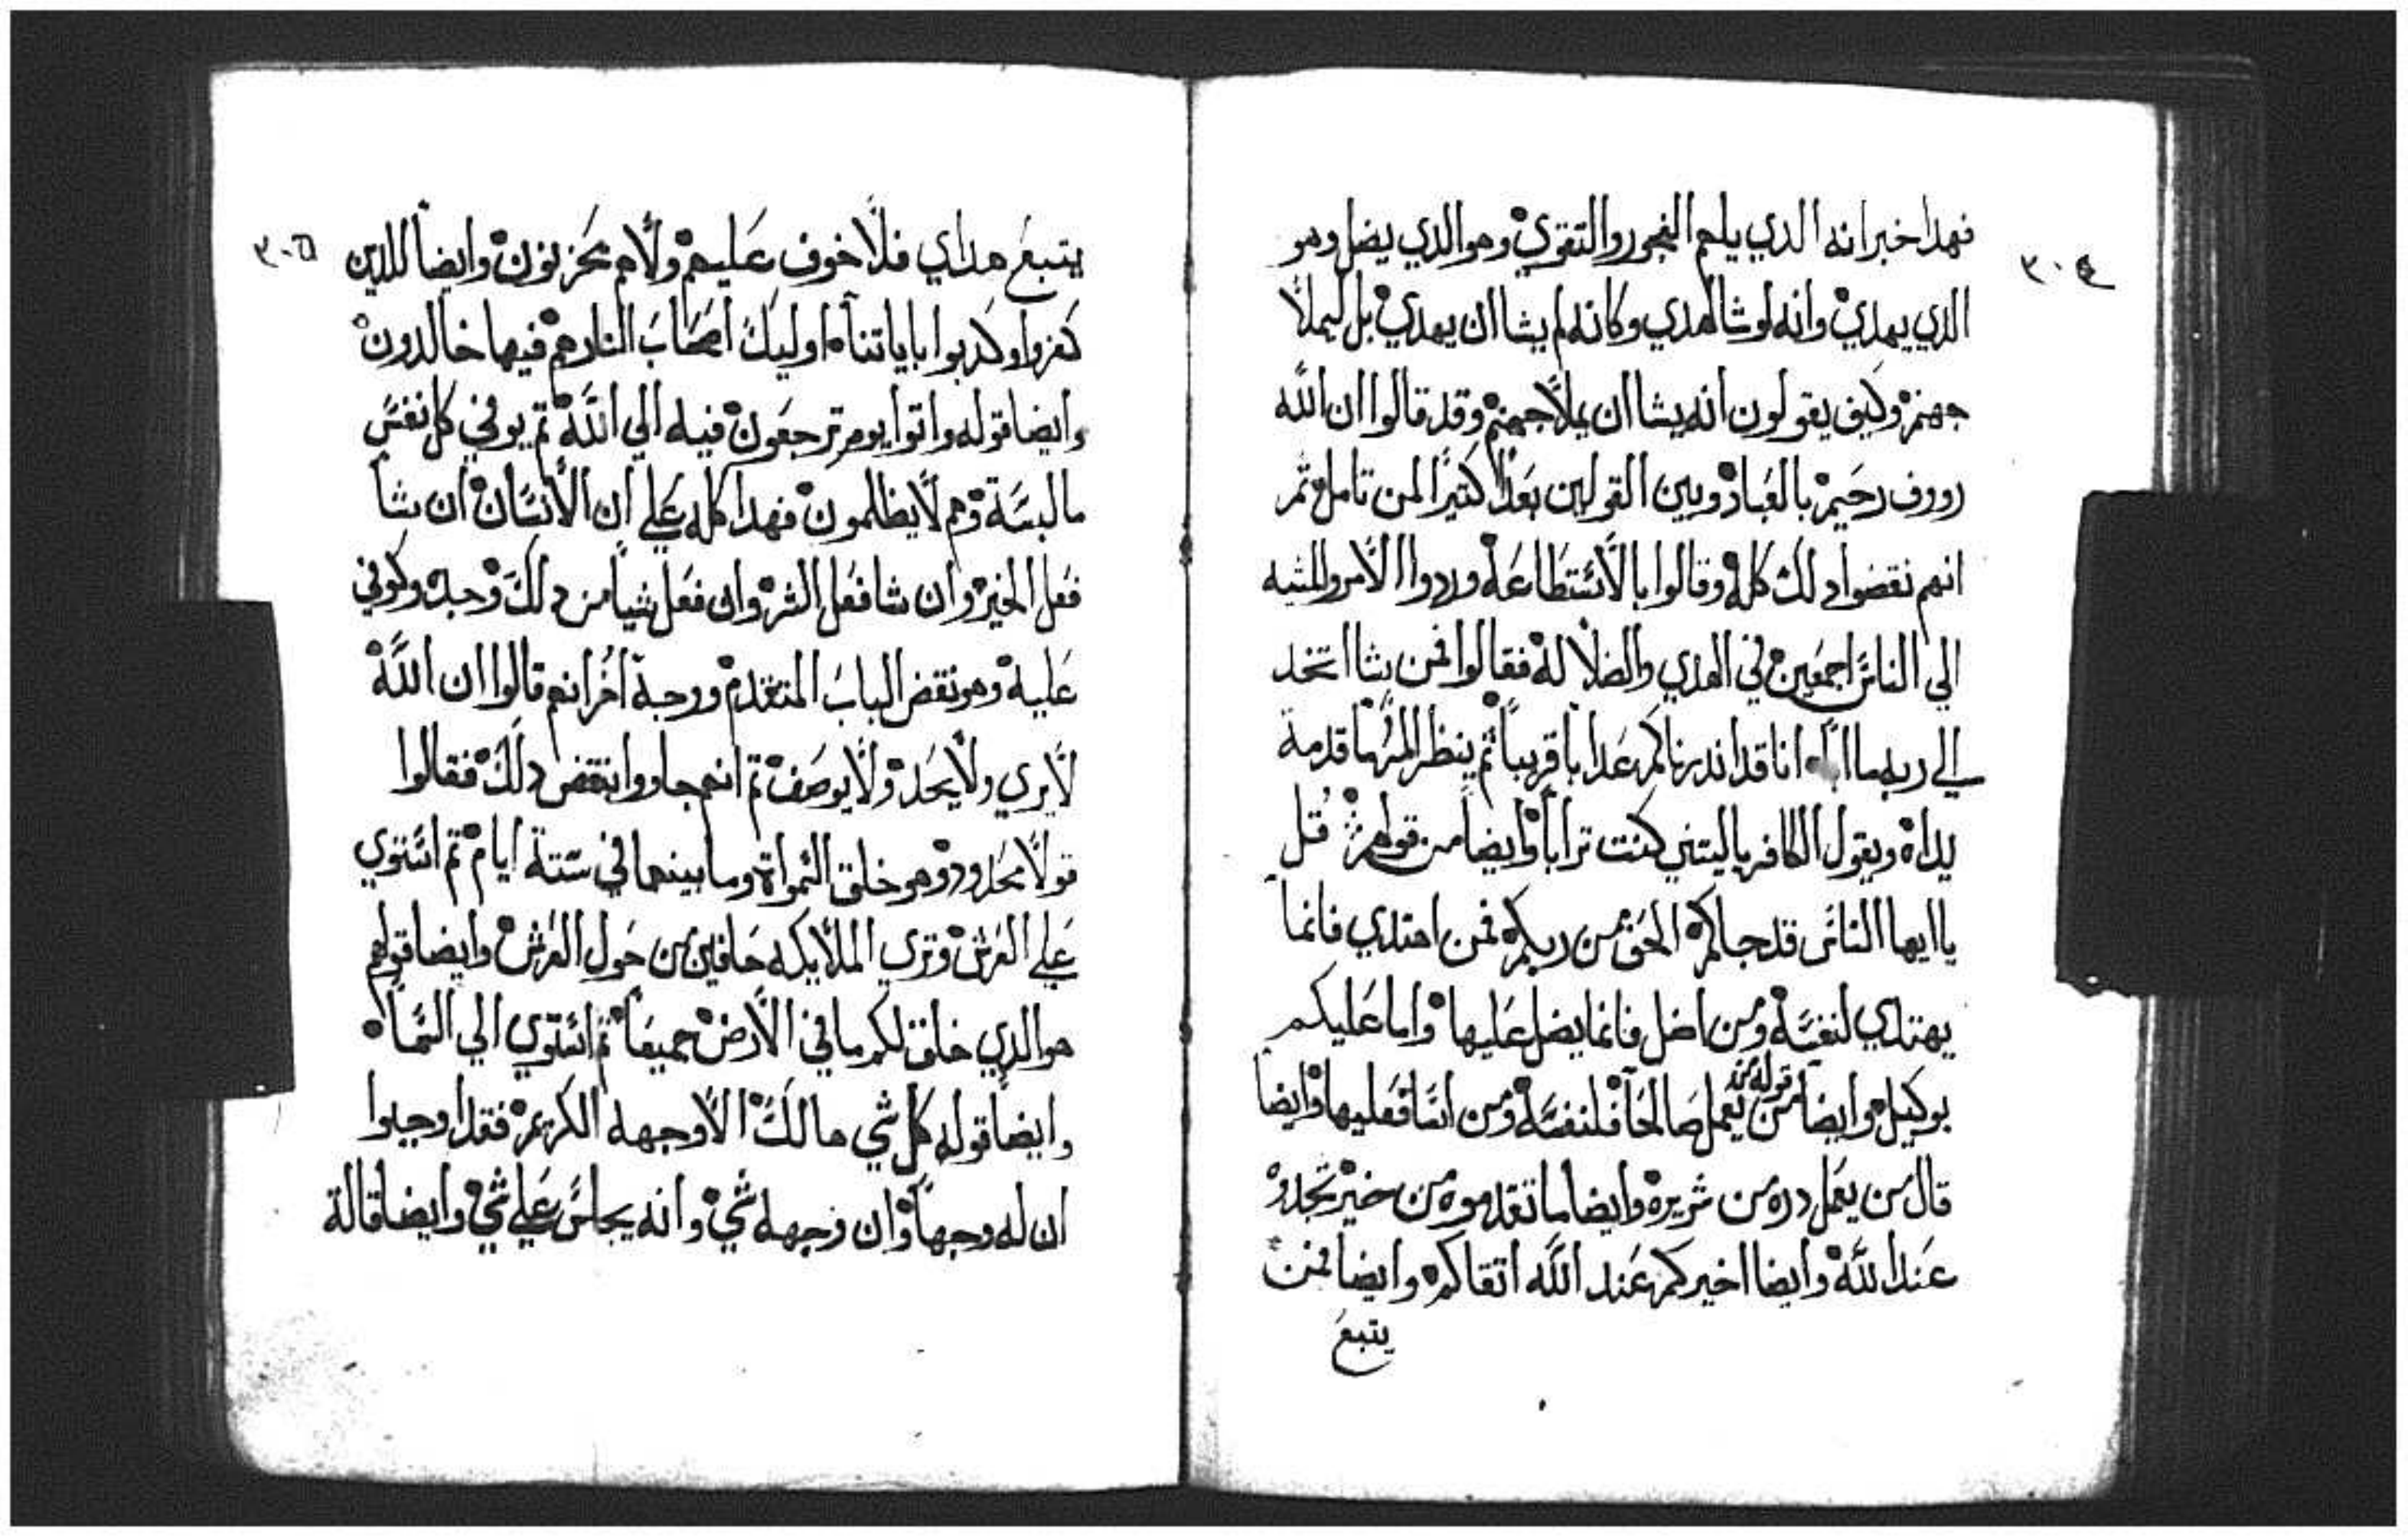 ٣٠٤
فهدا خبر انه الدي يلهم الفجور والتقوي وهو الدي يضل وهو
الدي يهدي وانه لو شا لهدي وكانه لم يشا ان يهدي بل ليملا
جهنم وكيف يقولون انه يشا ان يملا جهنم وقد قالوا ان الله
رووف رحيم بالعباد وبين القولين بعدا كتيرا لمن تامل تم
انهم نقضوا دلك كله وقالوا بالاستطاعه وردوا الامر والمشيه
الي الناس اجمعين في الهدي والضلاله فقالوا فمن يشا اتخد
الي ربه مااباه انا قد اندرناكم عدابا قريبا تم ينظر المرما قدمة
يداه ويقول الكافر ياليتني كنت ترابا وايضا من قولهم قل
ياايها الناس قد جاكم الحق من ربكم فمن اهتدي فانما
يهتدي لنفسه ومن اضل فانما يضل عليها واما عليكم
بوكيل وايضا قوله من يعمل صالحا فلنفسه ومن اسا فعليها وايضا
قال من يعمل دره من شر يره وايضا ما تقدموه من خير تجدوه
عند الله وايضا اخيركم عند الله اتقاكم وايضا فمن
يتبع
٣٠٥
يتبع هداي فلا خوف عليهم ولا هم يحزنون وايضا للدين
كفروا وكدبوا باياتنا اوليك اصحاب النار هم فيها خالدون
وايضا قوله واتوا يوم ترجعون فيه الي الله تم يوفي كل نفس
ما لبسة وهم لا يظلمون فهدا كله علي ان الانسان ان شا
فعل الخير وان شا فعل الشر وان فعل شيا من دلك وجبه وكوفي
عليه وهو نقض الباب المتقدم ووجبة اخر انهم قالوا ان الله
لا يري ولا يحد ولا يوصف تم انهم جاووا بنقض دلك فقالوا
قولا محدود وهو خلق السمواة وما بينهما في ستة ايام تم استوي
علي العرش وتري الملايكه حافين من حول العرش وايضا قولهم
هو الدي خلق لكم ما في الارض جميعا تم استوي الي السما
وايضا قوله كل شي هالك الا وجهه الكريم فقد اوجبوا
ان له وجها وان وجهه شي وانه يجلس علي شي وايضا قالة